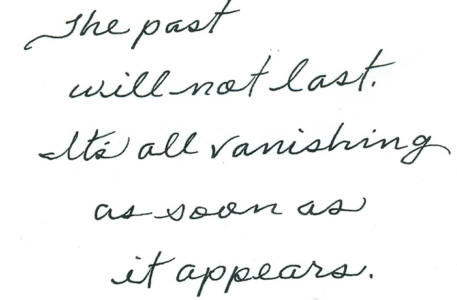 The past
will not last.
It's all vanishing
as soon as
it appears.